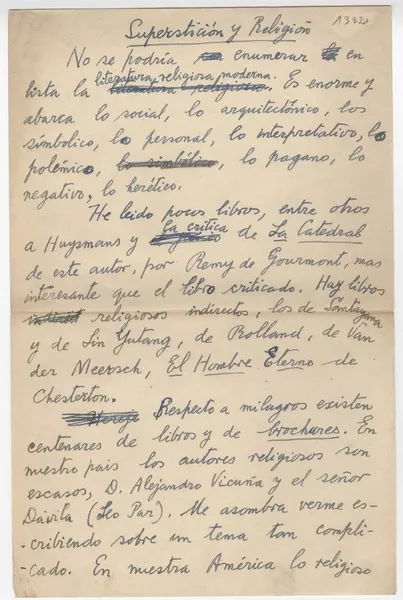 Superstición y Religión
No se podría enumerar en
literatura religiosa moderna.
lista la literatura religiosa. Es enorme y
abarca lo social, lo arquitectónico, los
símbolico, lo personal, lo interpretativo, lo
polémico, lo simbólico, lo pagano, lo
negativo, lo herético.
He leido pocos libros, entre otros
la crítica
a Huysmans y de La Catedral
de este autor, por Remy de Gourmont, mas
interesante que el libro criticado. Hay libros
religiosos indirectos, los de Santayana
y de Lin Yutang, de Rolland, de Van
der Meersch, El Hombre Eterno de
Chesterton.
Hereje Respecto a milagros existen
centenares de libros y de brochures. En
nuestro pais los autores religiosos son
escasos, D. Alejandro Vicuña y el señor
Dávila (Leo Par). Me asombra verme es-
-cribiendo sobre un tema tan compli-
-cado. En nuestra América lo religioso